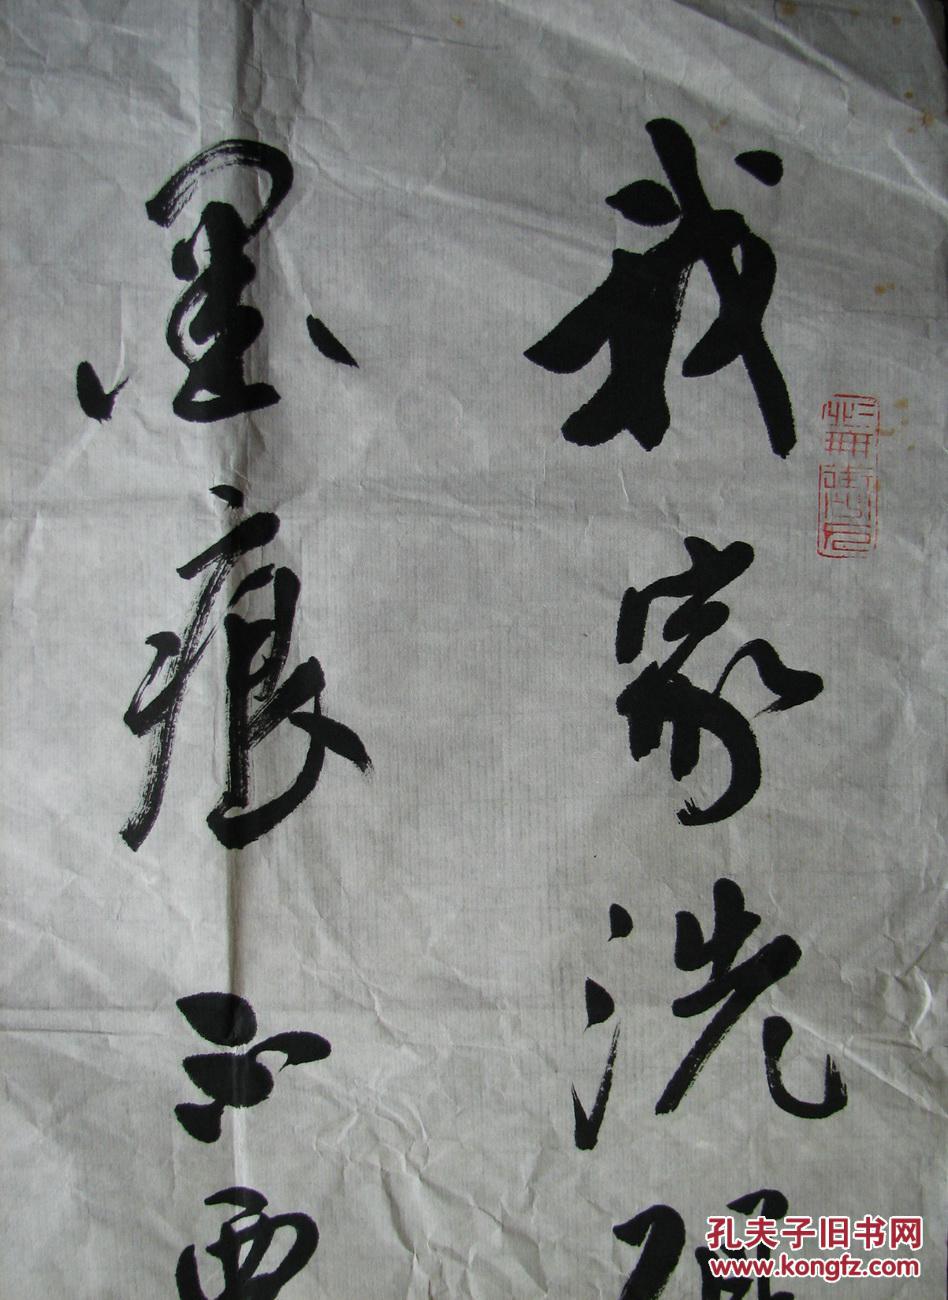 我家洗硯
墨痕不要
孔夫子旧书网
www.kongfz.com